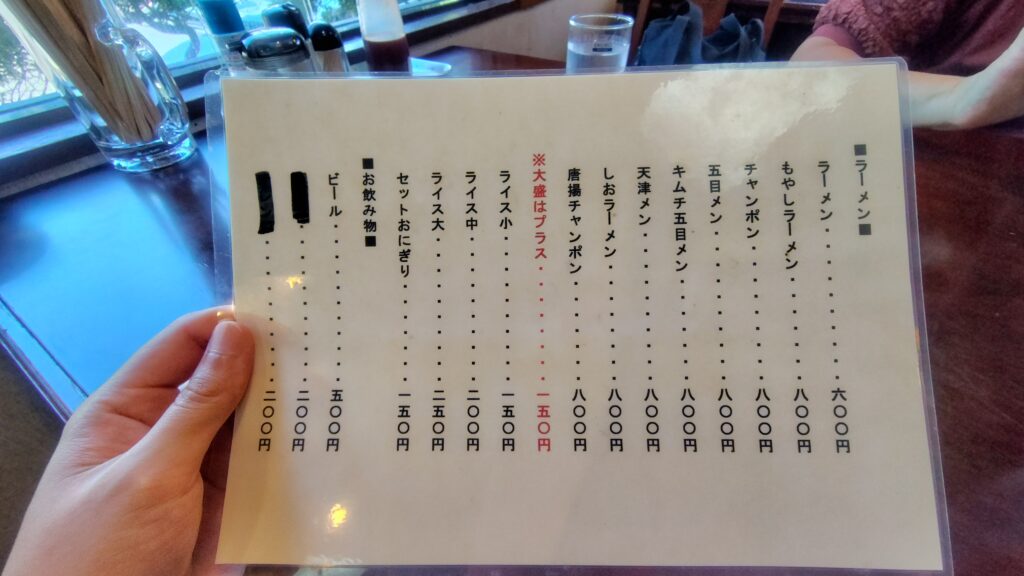 ■ラーメン■
ラーメン・・・・・・・・・・六〇〇円
もやしラーメン・・・・・・八〇〇円
チャンポン・・・・・・・・・八〇〇円
五目メン・・・・・・・・・・八〇〇円
キムチ五目メン・・・・・・八〇〇円
天津メン・・・・・・・・・・八〇〇円
しおラーメン・・・・・・・八〇〇円
唐揚チャンポン・・・・・・八〇〇円
※大盛はプラス・・・・・・・一五〇円
ライス小・・・・・・・・・・一五〇円
ライス中・・・・・・・・・・二〇〇円
ライス大・・・・・・・・・・二五〇円
セットおにぎり・・・・・・一五〇円
■お飲み物■
ビール・・・・・・・・・・五〇〇円
・・・・・・・・・・二〇〇円
・・・・・・・・・・二〇〇円